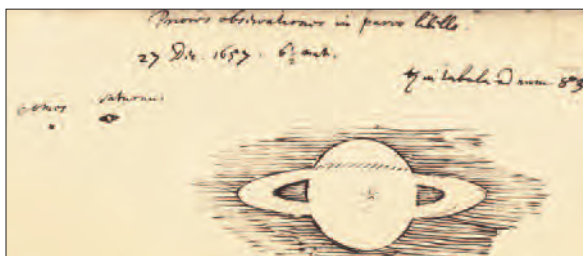 Priores observationes in parvo libello.
27 Dec. 1657. 6½ mat.
♄ in tabula ad num
comes saturnus